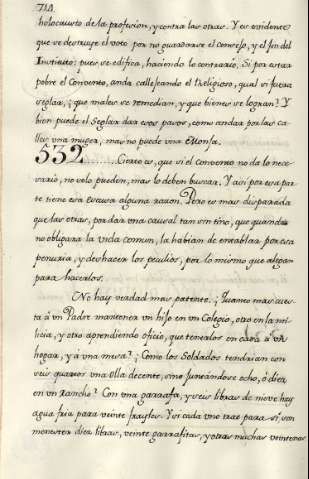 holocausto de la profesion, y contra las otras. Y es evidente
que se destruye el voto por no guardarse el consejo, y el fin del
Instituto; pues se edifica, haciendo lo contrario. Si por estar
pobre el Convento, anda callejeando el Religioso, qual si fuera
seglar, ¿que males se remedian, y que bienes se logran? Y
bien puede el Seglar dar esos pasos, como andar por las ca-
lles una muger, mas no puede una Monja.
532. Cierto es, que si el convento no da lo nece-
sario, no velo pueden, mas lo deben buscar. Y asi por esa par-
te tiene esa excusa alguna razon. Pero es mas disparada
que las otras, por dar una causal tan sin tino, que quando
no obligara la vida comun, la habian de entablar por esa
penuria, y deshacer los peculios, por lo mismo que alegan
para hacerlos.
No hay verdad mas patente. ¿Quanto mas cues-
ta á un Padre mantener un hijo en un Colegio, otro en la mi-
licia, y otro aprendiendo oficio, que tenerlos en casa á un
hogar, y á una mesa? ¿Como los Soldados tendrian con
seis quartos una olla decente, sino juntandose ocho, ó diez
en un Rancho? Con una garrafa, y seis libras de nieve hay
agua fria para veinte frayles. Y si cada uno trae para sí, son
menester diez libras, veinte garrafitas, y otras muchas veintenas